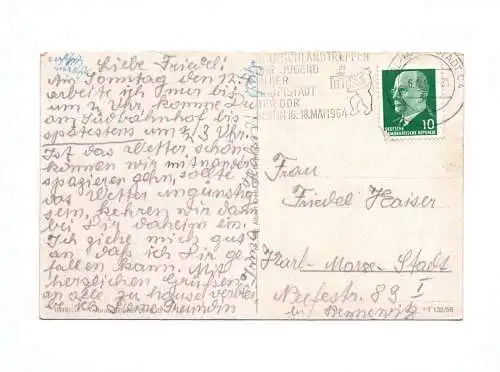 Liebe Friedel!
Am Sonntag den 12.
arbeite ich nur bis
um 2 Uhr, komme Du
am Südbahnhof bis
spätestens um ½ 3 Uhr.
Ist das Wetter schön
können wir miteinander
spazieren gehn, sollte
das Wetter ungünstig
sein, kehren wir dann
bei Dir daheim ein.
Ich ziehe mich gut
an daß ich Dir ge
fallen kann. Mit
herzlichen Grüßen
an alle zu hause verbleibe
ich Deine Freundin
DEUTSCHLANDTREFFEN
DER JUGEND
IN DER
HAUPTSTADT
DER DDR
BERLIN 16.-18. MAI 1964
10
DEUTSCHE
DEMOKRATISCHE REPUBLIK
Frau
Friedel Kaiser
Karl-Marx-Stadt
Neefestr. 89 I
T 132/66